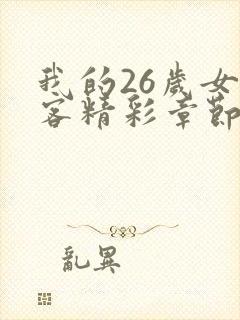 我的26歲女
客精彩章節
亂異